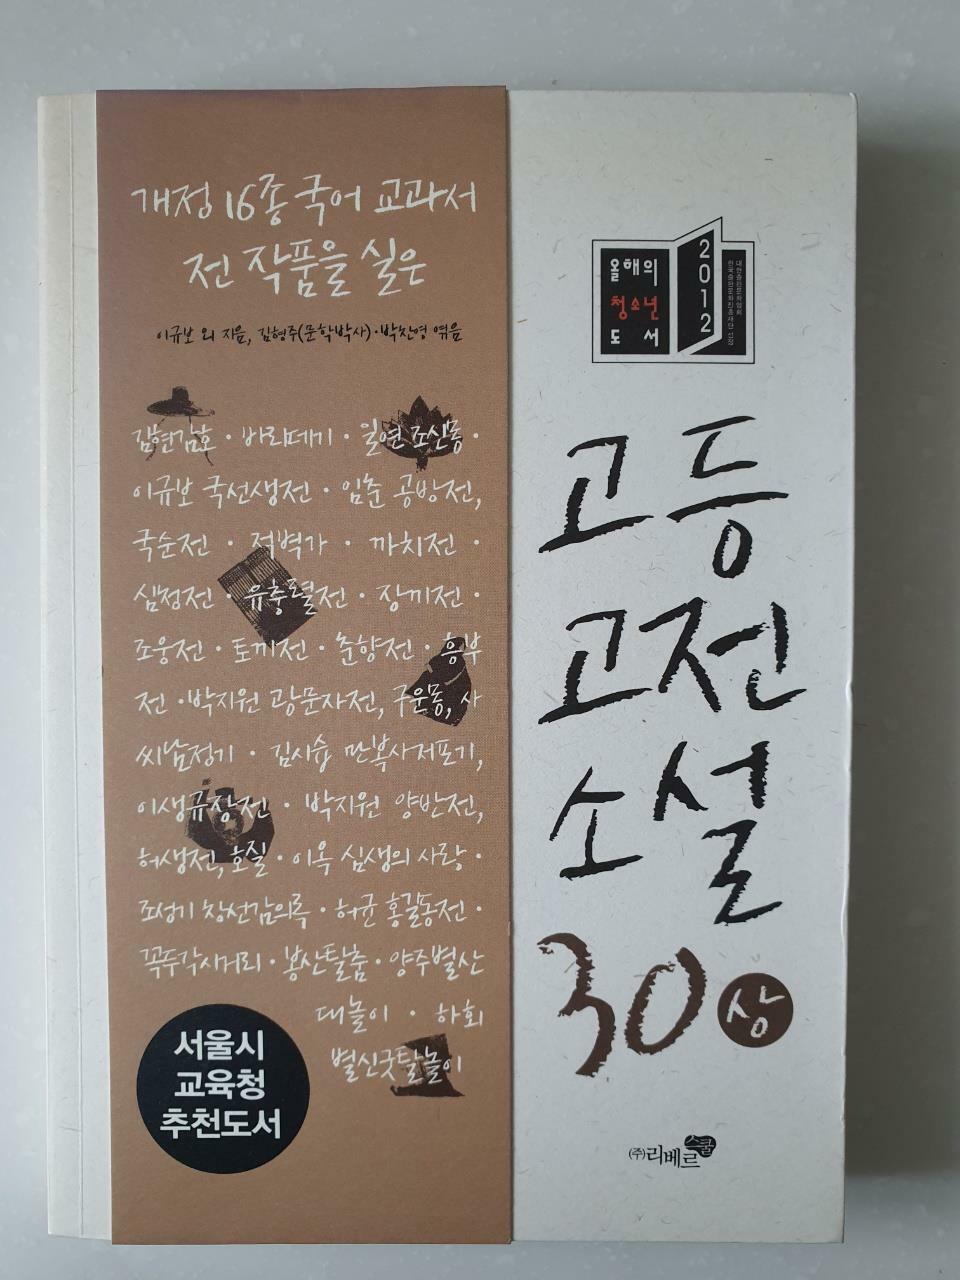 개정 16종 국어 교과서
전 작품을 실은
이규보 외 지음, 김형주(문학박사)·박찬영 엮음
김현감호 · 바리데기 · 일연 조신몽 ·
이규보 국선생전 · 임춘 공방전,
국순전 · 적벽가 · 까치전 ·
심청전 · 유충렬전 · 장끼전 ·
조웅전 · 토끼전 · 춘향전 · 흥부
전 · 박지원 광문자전, 구운몽, 사
씨남정기 · 김시습 만복사저포기,
이생규장전 · 박지원 양반전,
허생전, 호질 · 이옥 심생의 사랑 ·
조성기 창선감의록 · 허균 홍길동전 ·
꼭두각시거리 · 봉산탈춤 · 양주별산
대놀이 · 하회
별신굿탈놀이
서울시
교육청
추천도서
올해의
청소년
도서
2012
대한출판문화협회
한국출판문화진흥재단 선정
고등
고전
소설
30 상
(주)리베르
스쿨